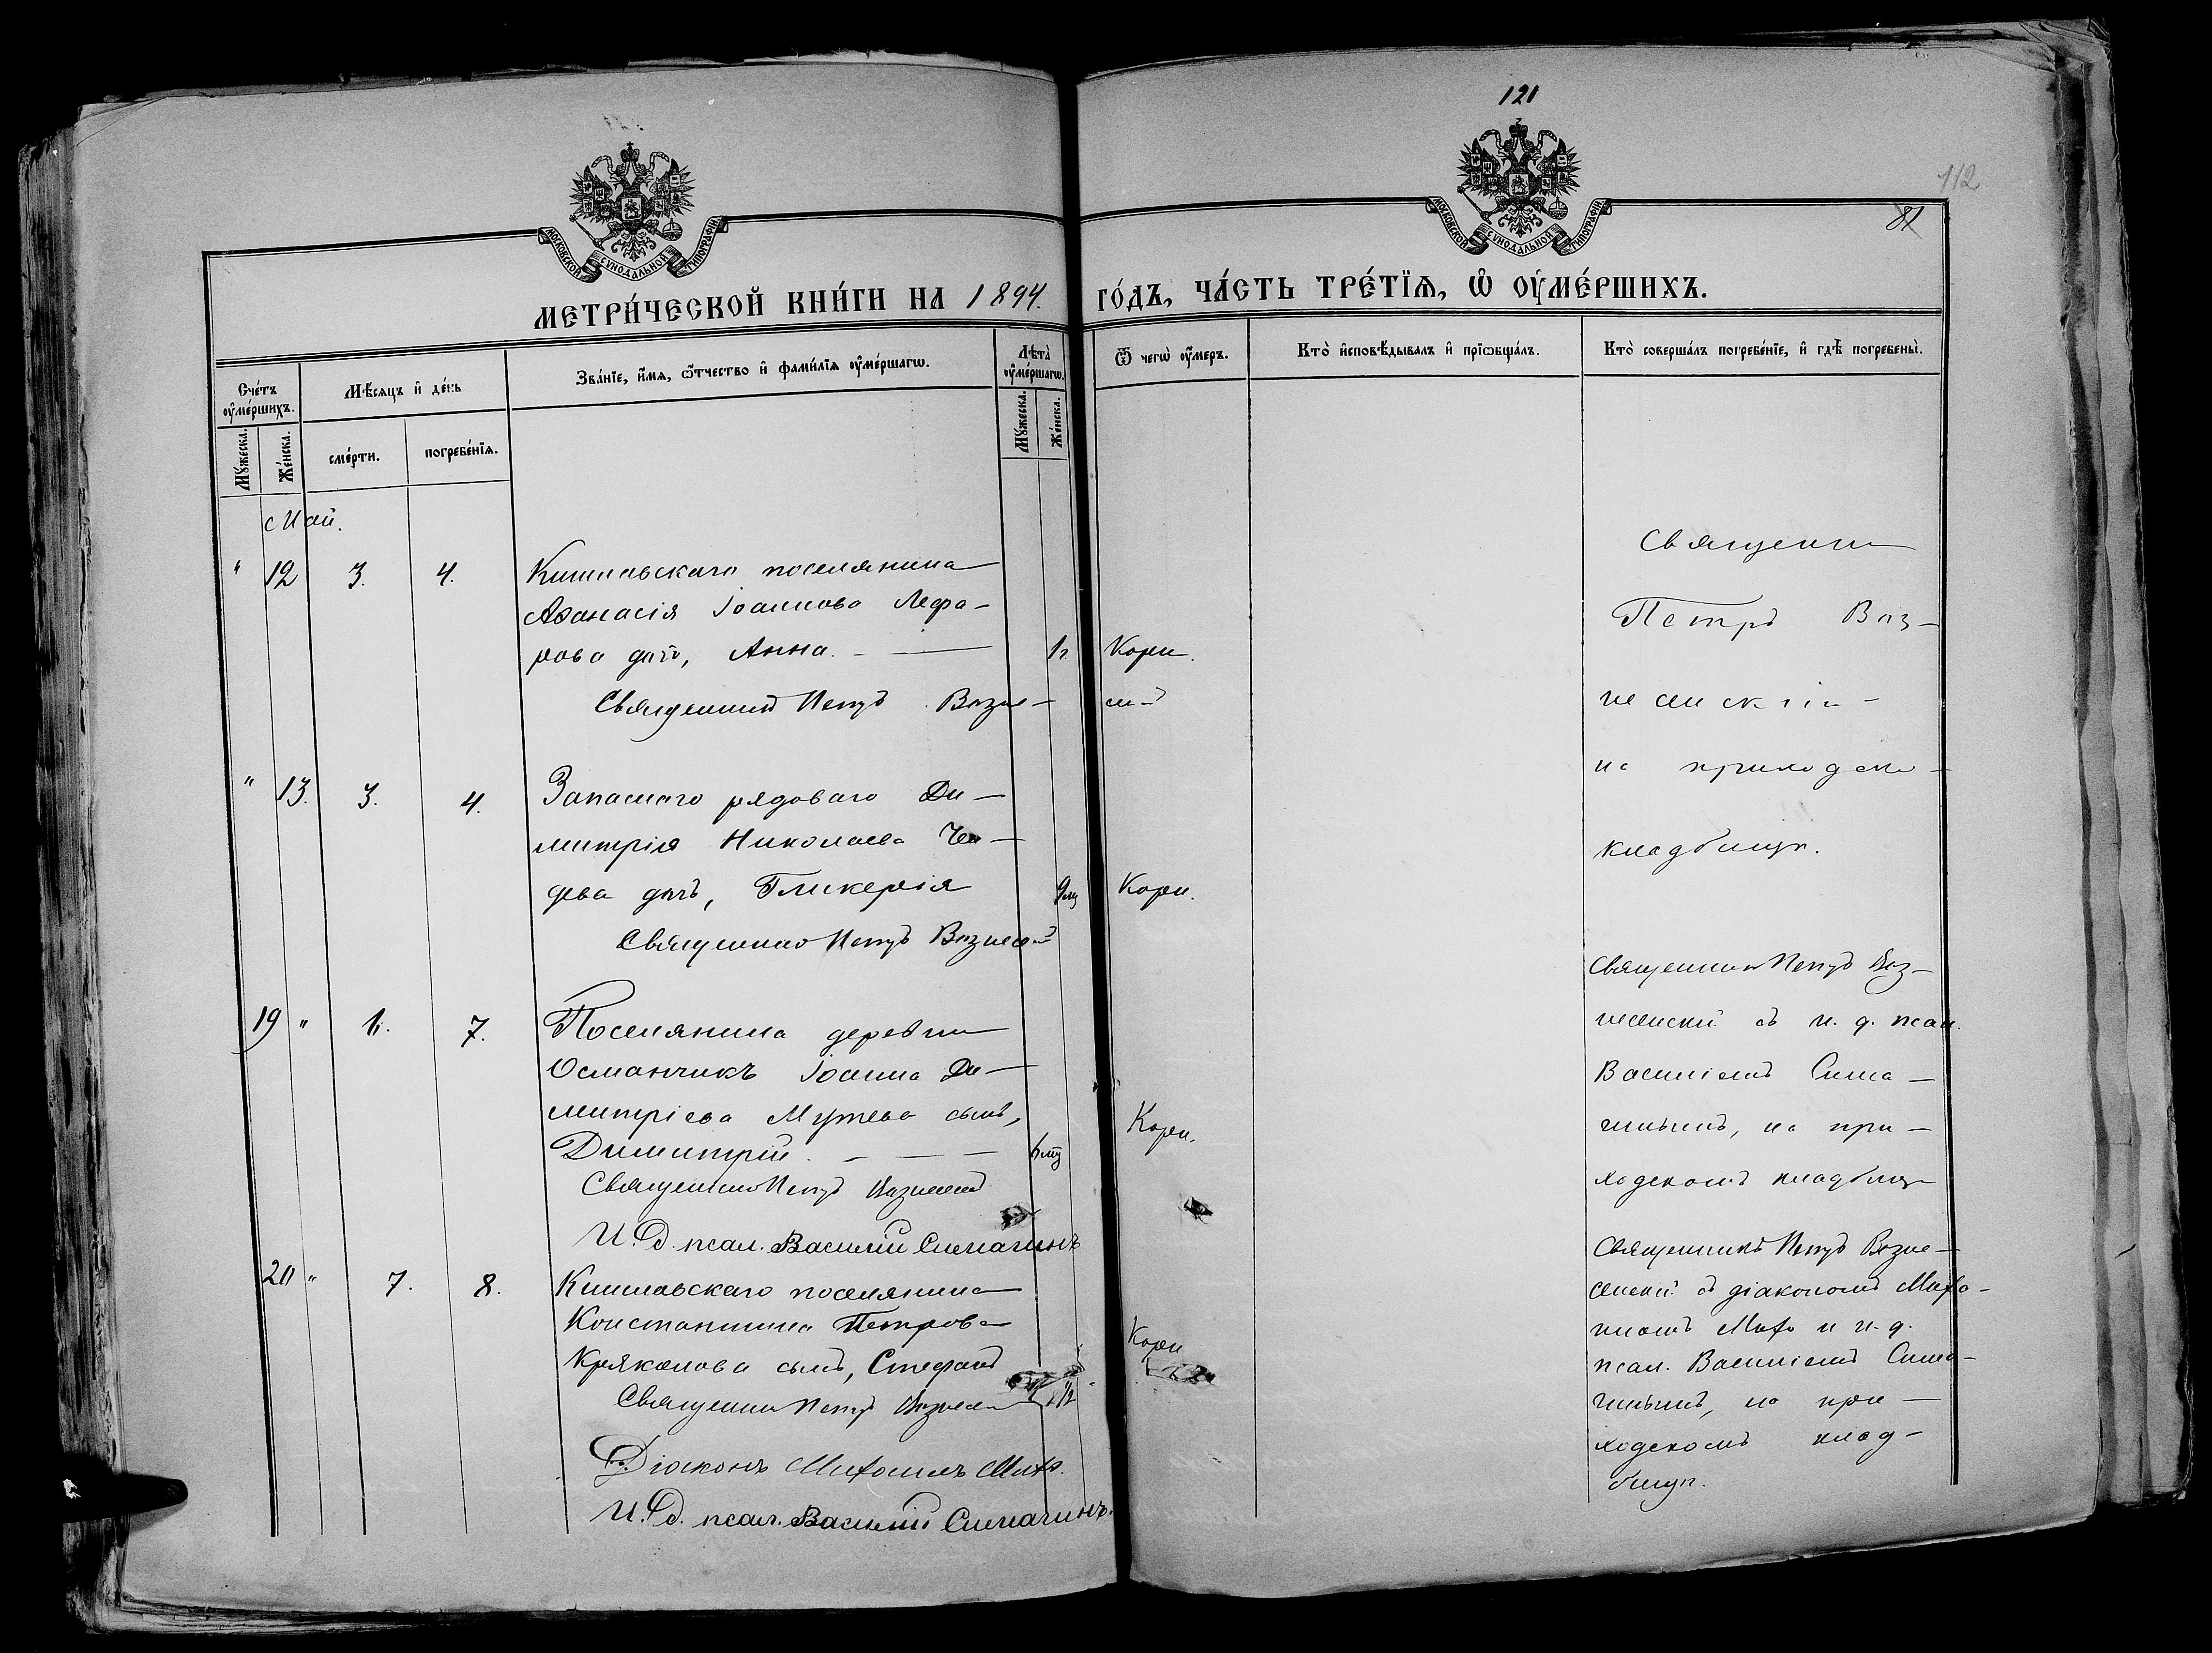 121
112
81
МОСКОВСКОЙ СѴНОДАЛЬНОЙ ТИПОГРАФІИ
МОСКОВСКОЙ СѴНОДАЛЬНОЙ ТИПОГРАФІИ
МЕТРИ́ЧЕСКОЙ КНИ́ГИ НА 1894.
ГО́ДЪ, ЧА́СТЬ ТРЕ́ТЇѦ, Ѡ҆ ОУ҆МЕ́РШИХЪ.
Сче́тъ оу҆ме́ршихъ.
Мꙋжеска.
Же́нска.
Мѣ́сяцъ и҆ де́нь
сме́рти.
погребе́нїѧ.
Зва́нїе, и҆́мѧ, ѻ҆́тчество и҆ фами́лїѧ оу҆ме́ршагѡ.
Лѣта̀ оу҆ме́ршагѡ.
Мꙋжеска.
Же́нска.
Ѿ чегѡ̀ оу҆́меръ.
Кто̀ и҆сповѣ́дывалъ и҆ прїѡбща́лъ.
Кто̀ соверша́лъ погребе́нїе, и҆ гдѣ̀ погребены̀.
Май.
" 12 3. 4. Кишлавскаго поселянина
Аѳанасія Іоаннова Лефа-
рова дочь, Анна. - — 1 г. Кори.
Священникъ Петръ Вазне-
Священникъ
Петръ Ваз-
несенскій -
на приходско-
кладбищѣ.
" 13. 3. 4. Запаснаго рядоваго Ди-
митрія Николаева
дева дочь, Гликерія 9 мц Кори.
Священникъ Петръ Вазнесен
19 " 6. 7. Поселянина деревни
Османчикъ Іоанна Ди-
митріева Мутева сынъ,
Димитрій. - — — 6 мц Кори.
Священникъ Петръ Вазнесен
И. Д. псал. Василій Симачинъ
Священникъ Петръ Ваз-
несенскій съ и. д. псал.
Василіемъ Сима-
чинымъ, на при-
ходскомъ кладбищѣ
20 " 7. 8. Кишлавскаго поселянина
Константина Петрова
Кряколова сынъ, Стефанъ Кори
Священникъ Петръ Вазнесен
Діаконъ Митофилъ
И. Д. псал. Василій Симачинъ.
Священникъ Петръ Вазне-
сенскій съ діакономъ
и и. д.
псал. Василіемъ Сима-
чинымъ, на при-
ходскомъ клад-
бищѣ.